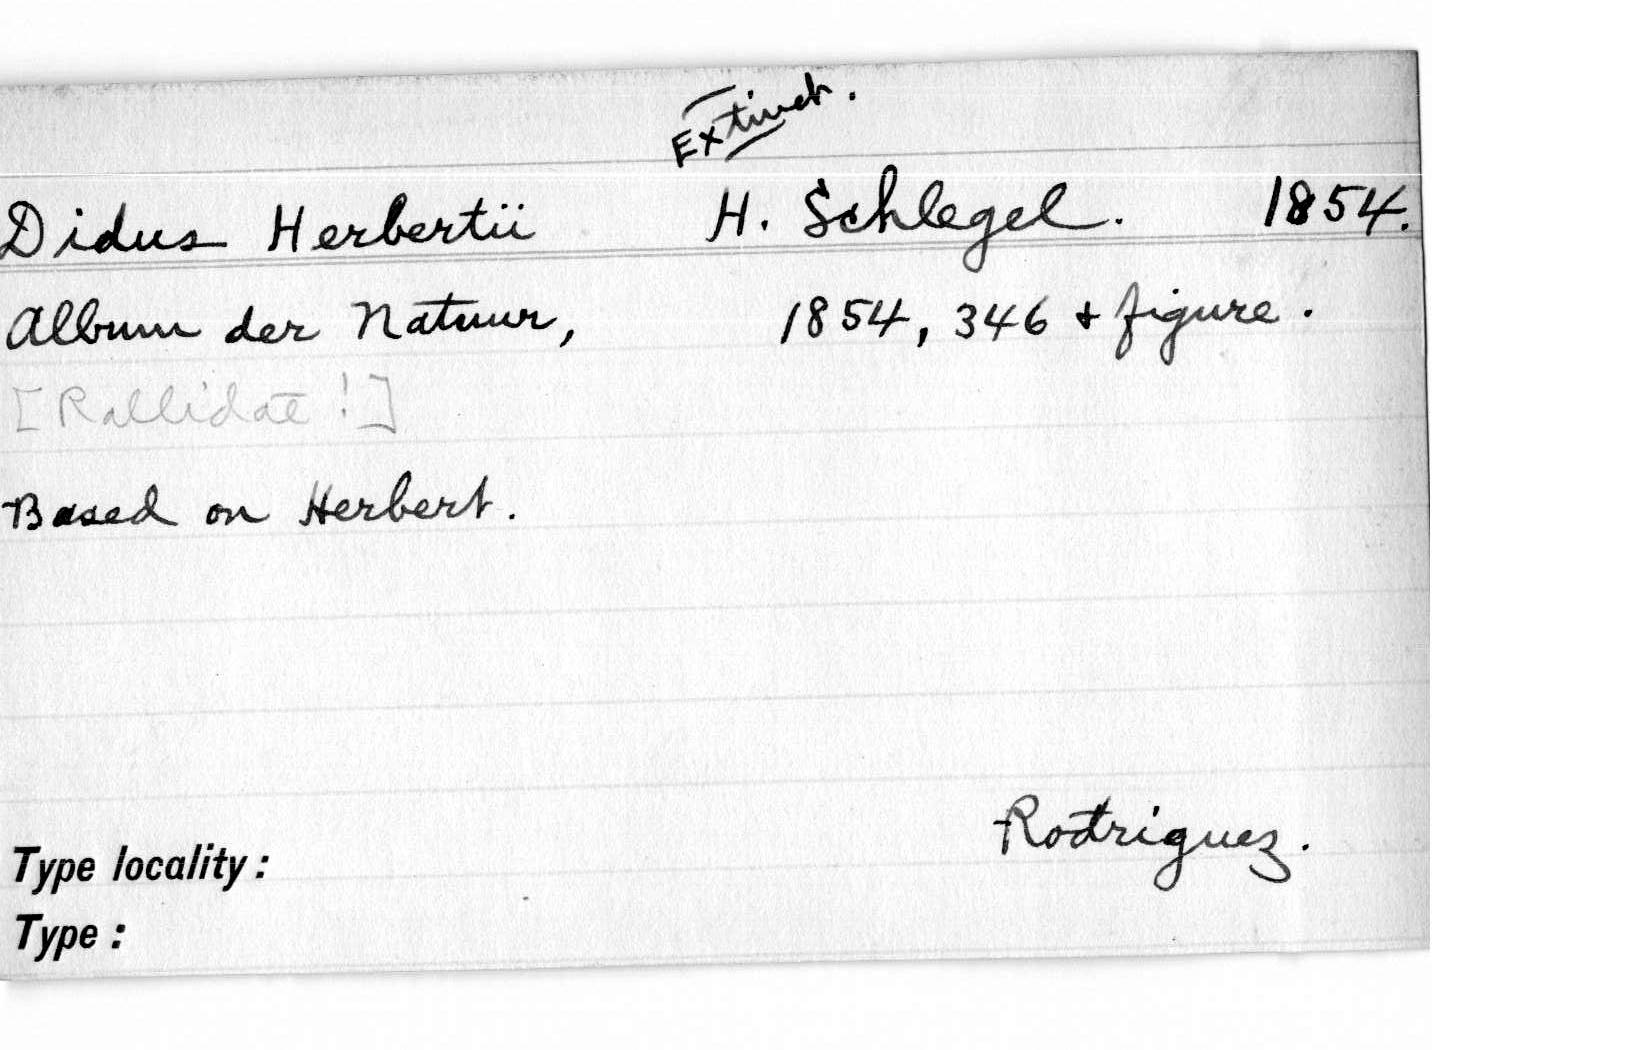 Extinct.
Didus Herbertii H. Schlegel. 1854.
Album der Natuur, 1854, 346 + figure.
[Rallidae!]
Based on Herbert.
Rodriguez.
Type locality:
Type: